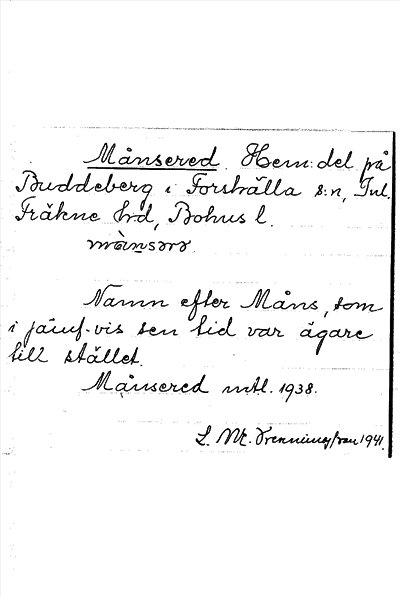 Månsered. Hem: del på
Buddeberg i Forshälla s:n, Inl.
Fräkne hrd, Bohus l.
månsərə.
Namn efter Måns, som
i jämf.vis sen tid var ägare
till stället.
Månsered mtl. 1938.
L. M. 1941.